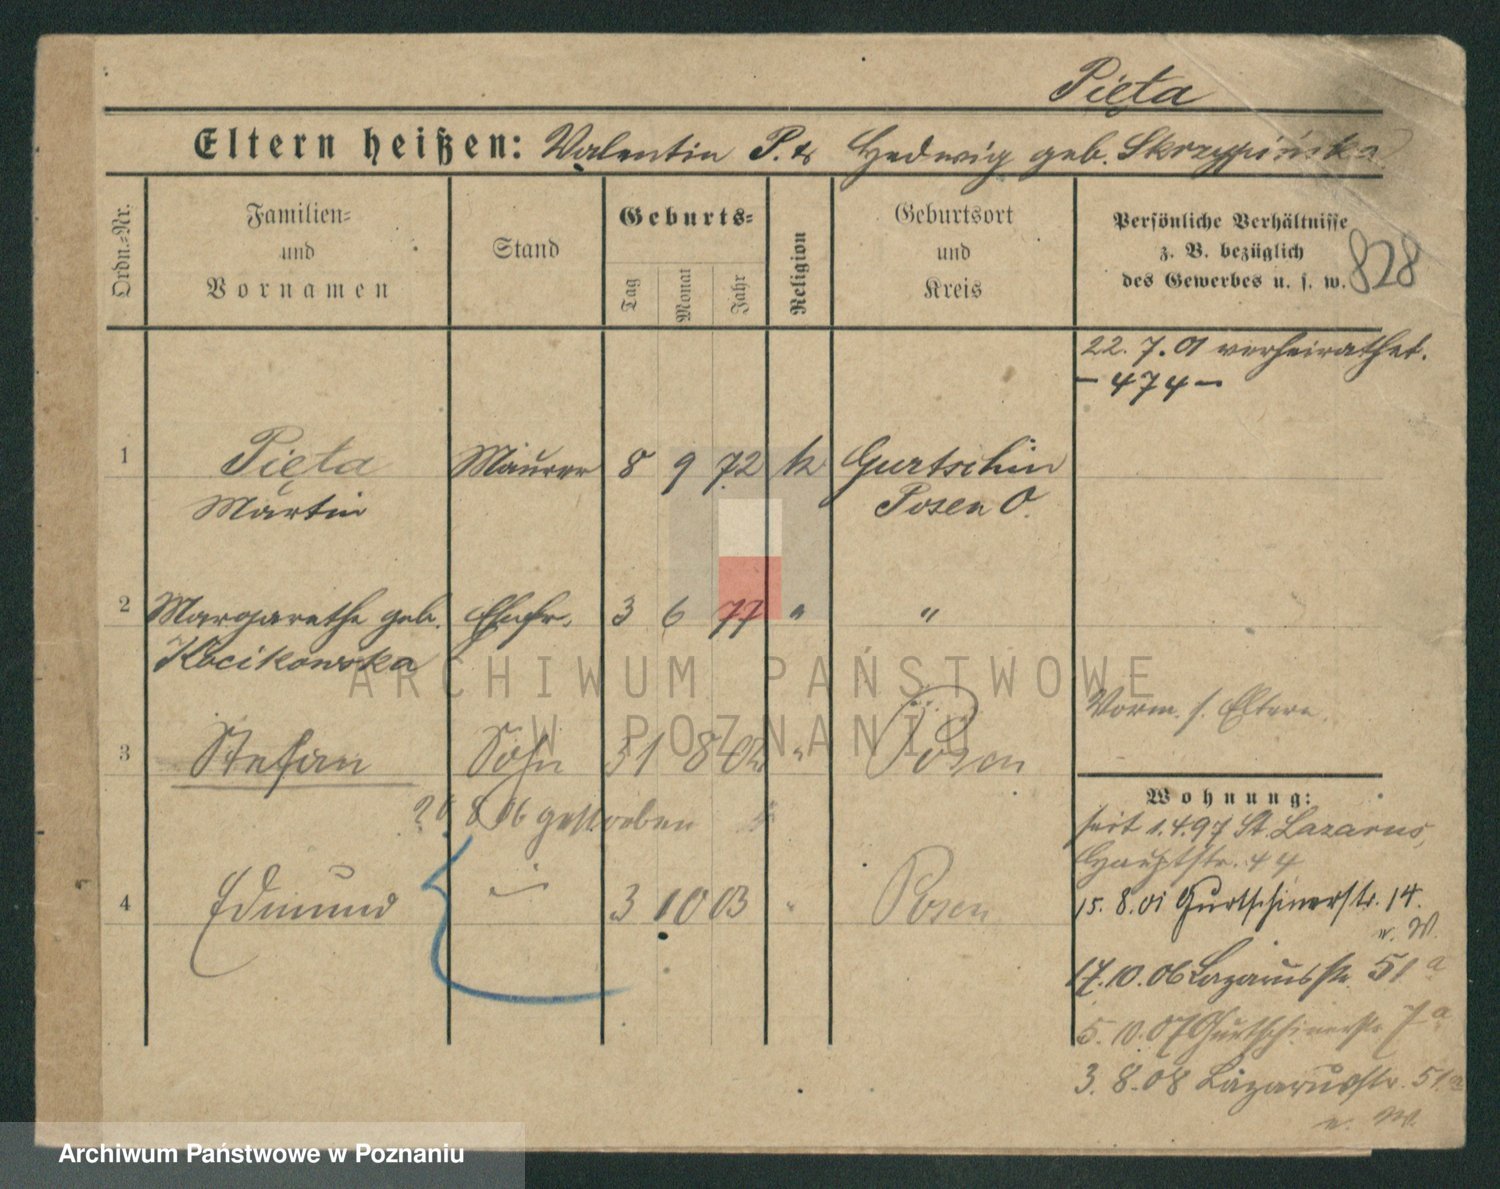 Pięta
Eltern heißen: Valentin P. & Hedwig geb. Skrzypińska
Ordn.-Nr.
Familien-
und
Vornamen
Stand
Geburts-
Tag
Monat
Jahr
Religion
Geburtsort
und
Kreis
Persönliche Verhältnisse
z. B. bezüglich
des Gewerbes u. s. w.
828
22. 7. 01 verheirathet.
- 474 -
1 Pięta Maurer 8 9 72 k Gurtschin
Martin Posen O.
2 Margarethe geb. Ehefr. 3 6 77 " "
Kocikowska
Vorm. s. Eltern.
3 Stefan Sohn 31 8 02 " Posen
8 06 gestorben
Wohnung:
seit 1.4.97 St. Lazarus,
Hauptstr. 44
4 Edmund 3 10 03 " Posen
15. 8. 01 Gurtschinerstr. 14.
n. W.
17. 10. 06 Lazarusstr. 51 a
5. 10. 07 Gurtschinerstr. 7a
3. 8. 08 Lazarusstr. 51a
n. W.
ARCHIWUM PAŃSTWOWE
W POZNANIU
Archiwum Państwowe w Poznaniu